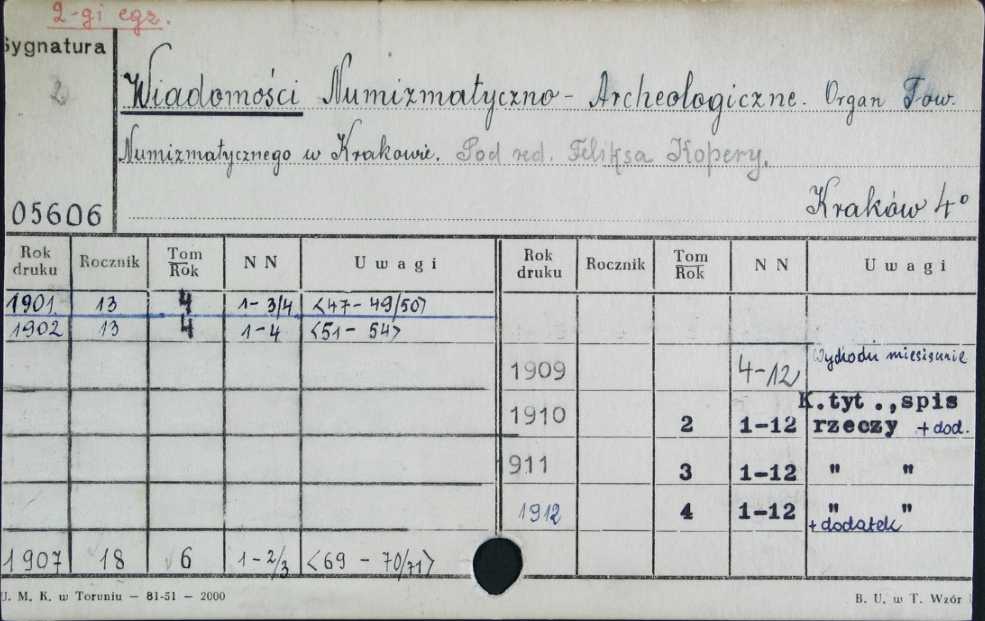 2-gi egz.
Sygnatura
2
Wiadomości Numizmatyczno - Archeologiczne. Organ Tow.
Numizmatycznego w Krakowie. Pod red. Feliksa Kopery.
05606
Kraków 4°
Rok druku Rocznik Tom Rok N N Uwagi Rok druku Rocznik Tom Rok N N Uwagi
1901 13 4 1-3/4 <47-49/50>
1902 13 4 1-4 <51-54>
1909 4-12 Wychodzi miesięcznie
1910 2 1-12 K.tyt.,spis rzeczy + dod.
1911 3 1-12 " "
1912 4 1-12 " "
+ dodatek
1907 18 6 1-2/3 <69-70/71>
U. M. K. w Toruniu — 81-51 — 2000
B. U. w T. Wzór